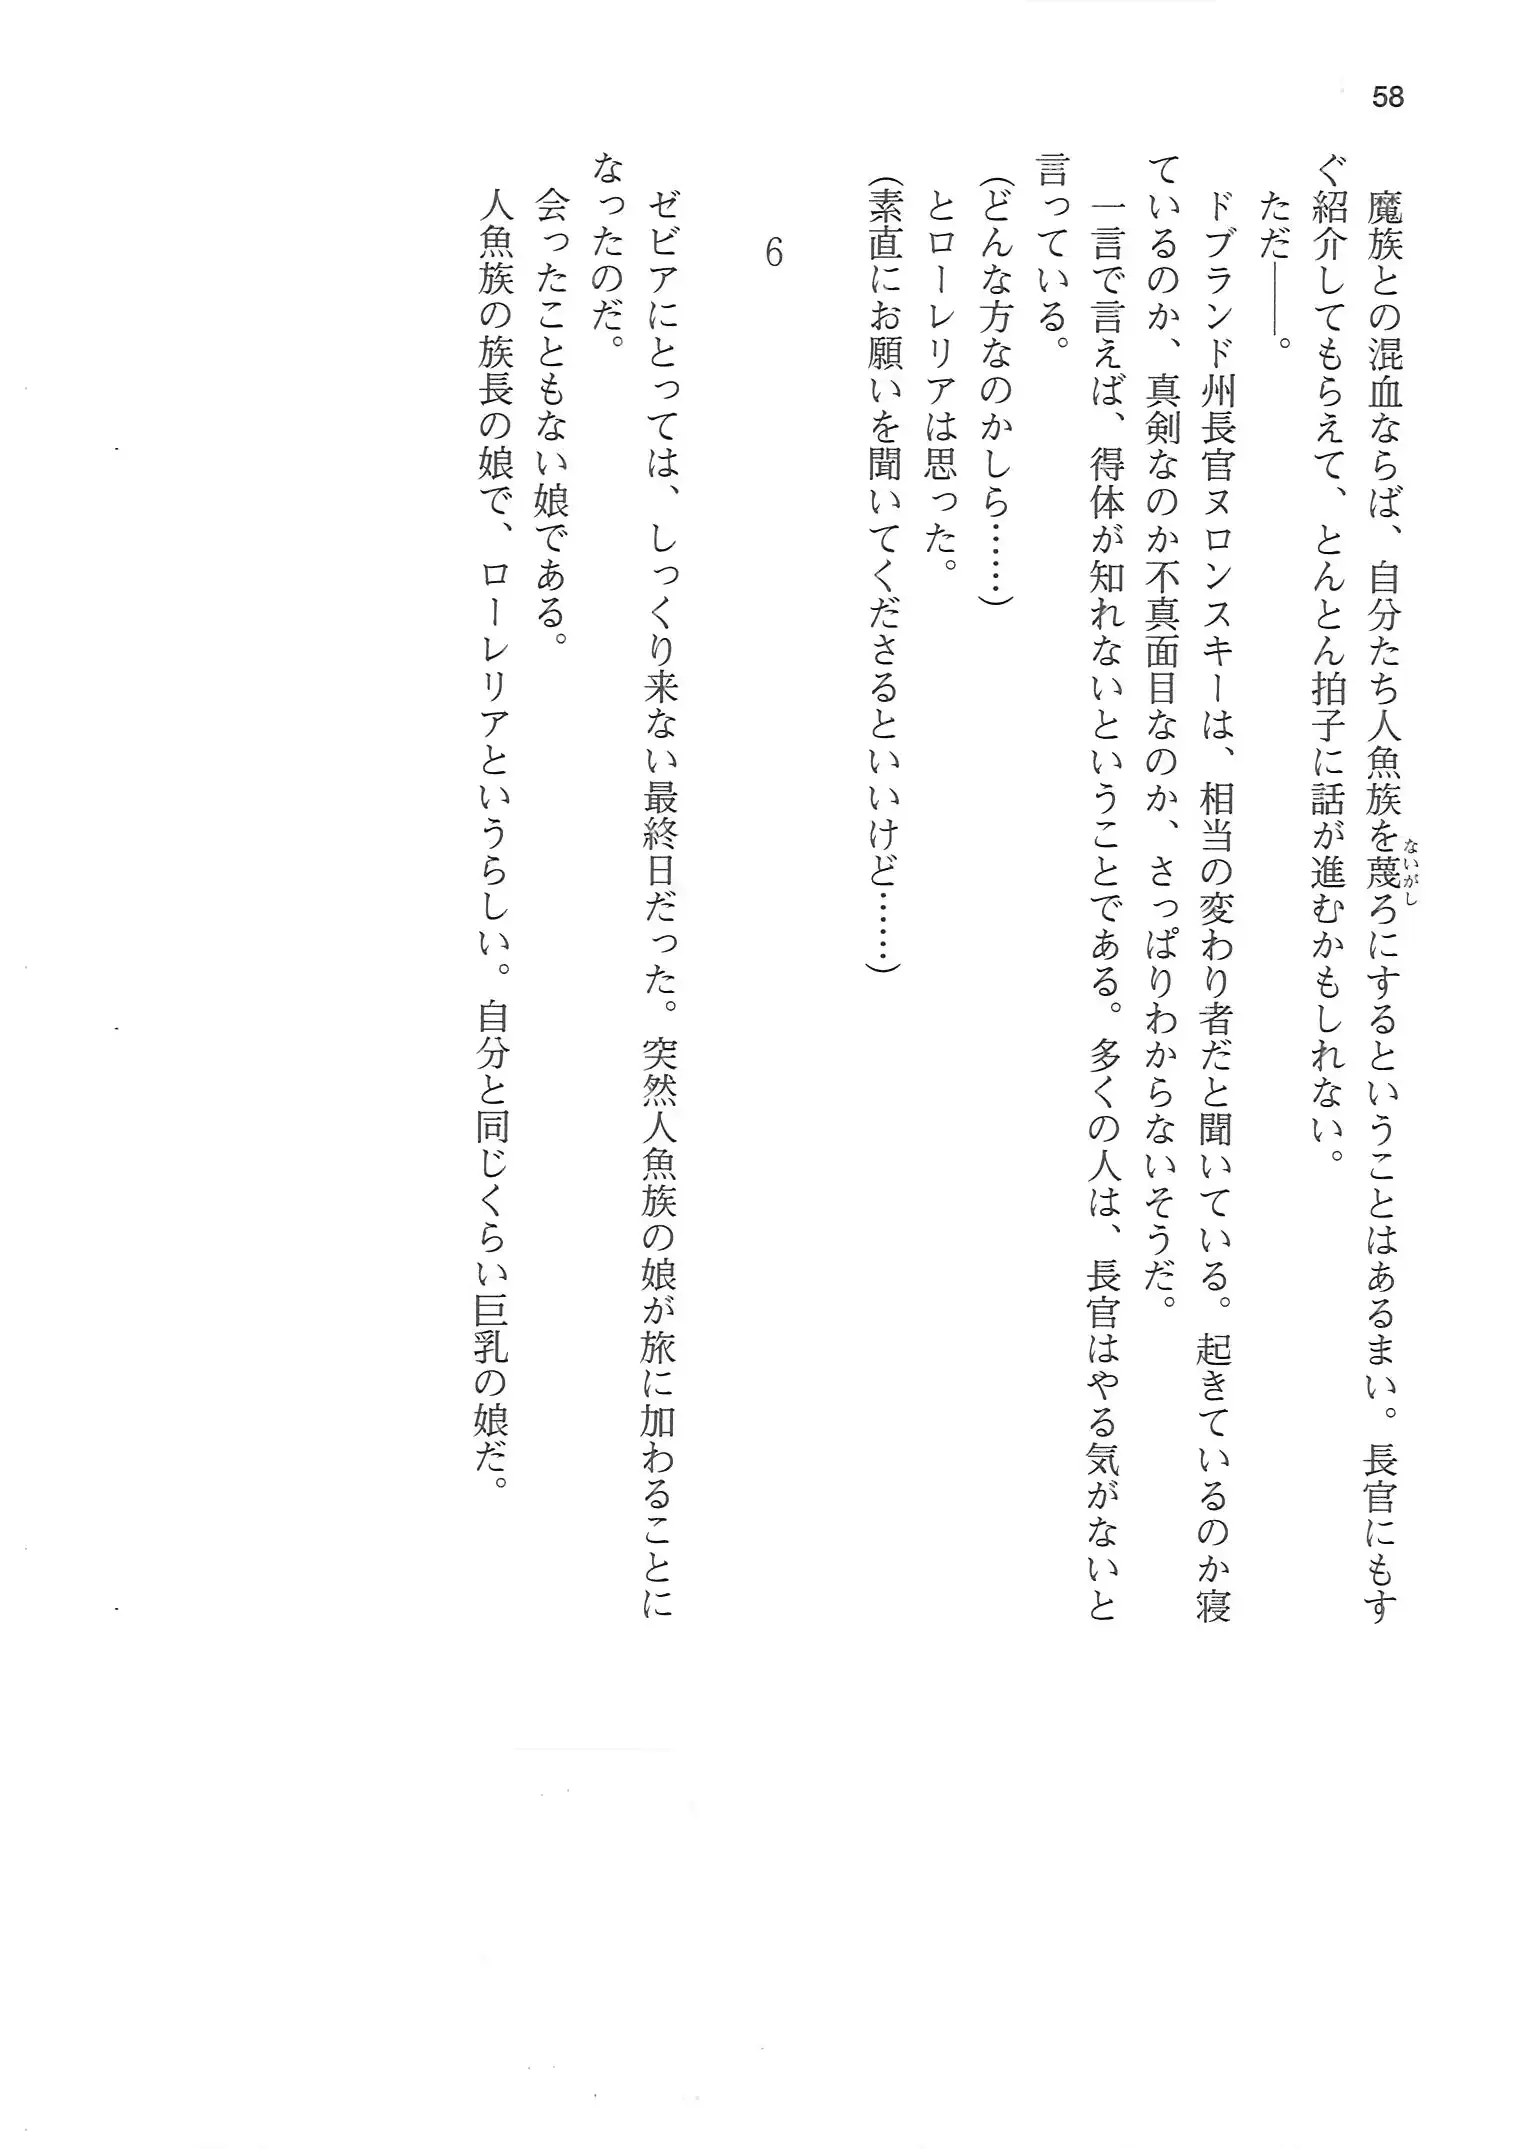 58
魔族との混血ならば、自分たち人魚族を蔑ろにするということはあるまい。長官にもす
ないがし
ぐ紹介してもらえて、とんとん拍子に話が進むかもしれない。
ただ――。
ドブランド州長官ヌロンスキーは、相当の変わり者だと聞いている。起きているのか寝
ているのか、真剣なのか不真面目なのか、さっぱりわからないそうだ。
一言で言えば、得体が知れないということである。多くの人は、長官はやる気がないと
言っている。
(どんな方なのかしら……)
とローレリアは思った。
(素直にお願いを聞いてくださるといいけど……)
6
ゼビアにとっては、しっくり来ない最終日だった。突然人魚族の娘が旅に加わることに
なったのだ。
会ったこともない娘である。
人魚族の族長の娘で、ローレリアというらしい。自分と同じくらい巨乳の娘だ。